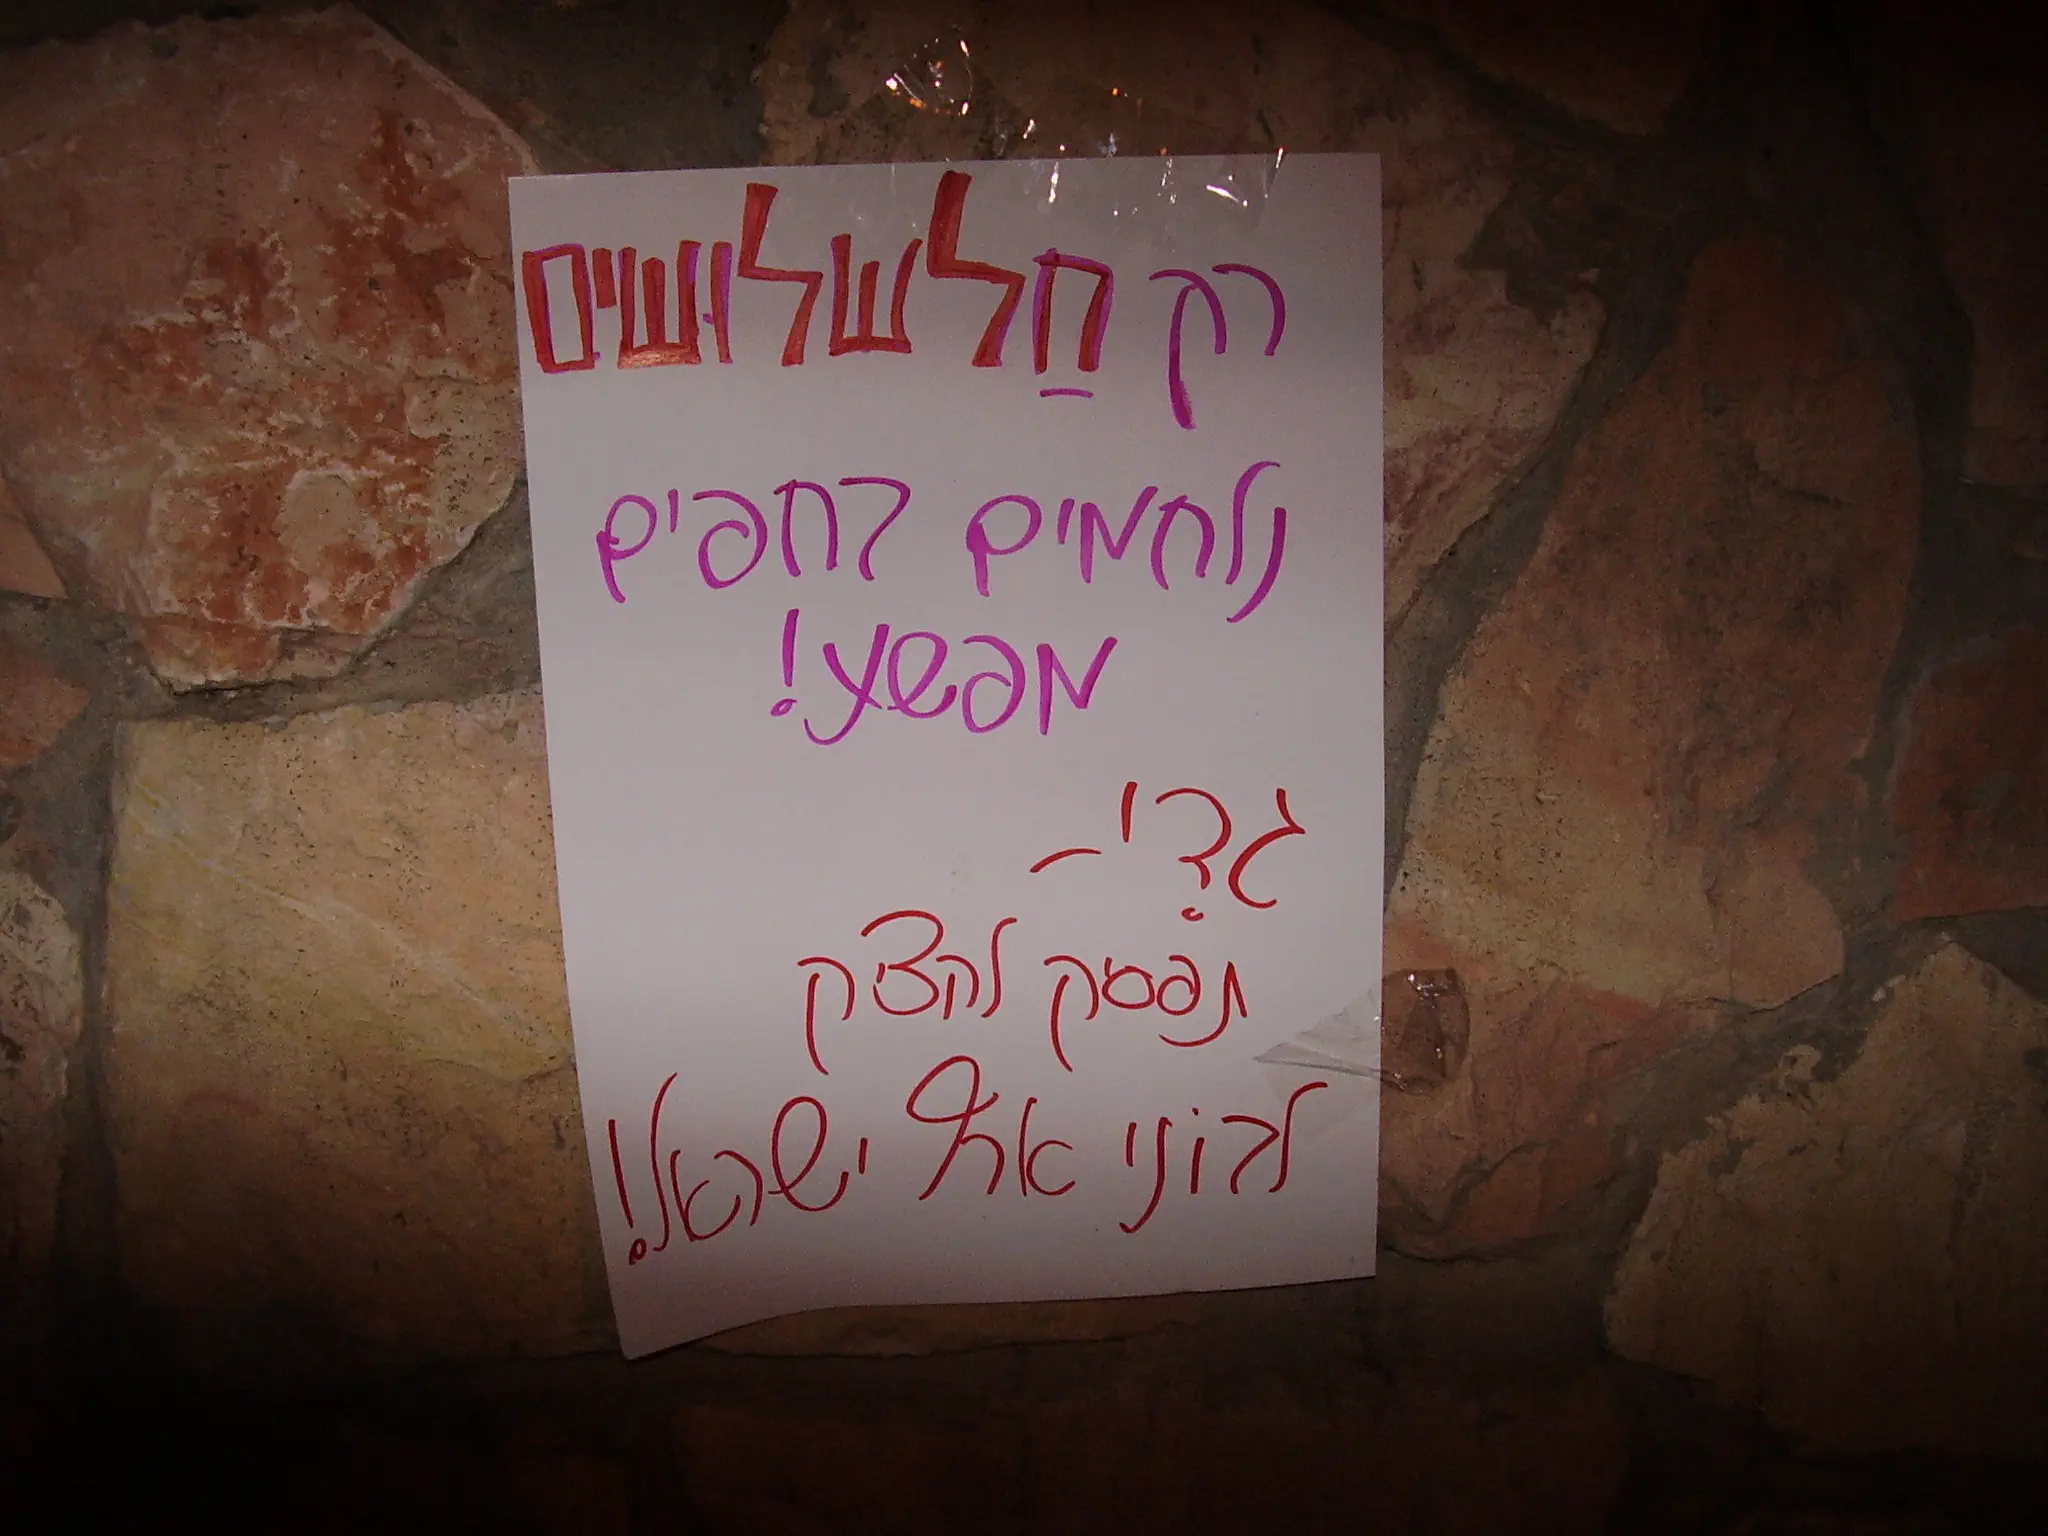 רק חַלשלושים
נלחמים דחפים
מפשע!
גדִי -
תפסיק להציק
לבוני ארץ ישראל!